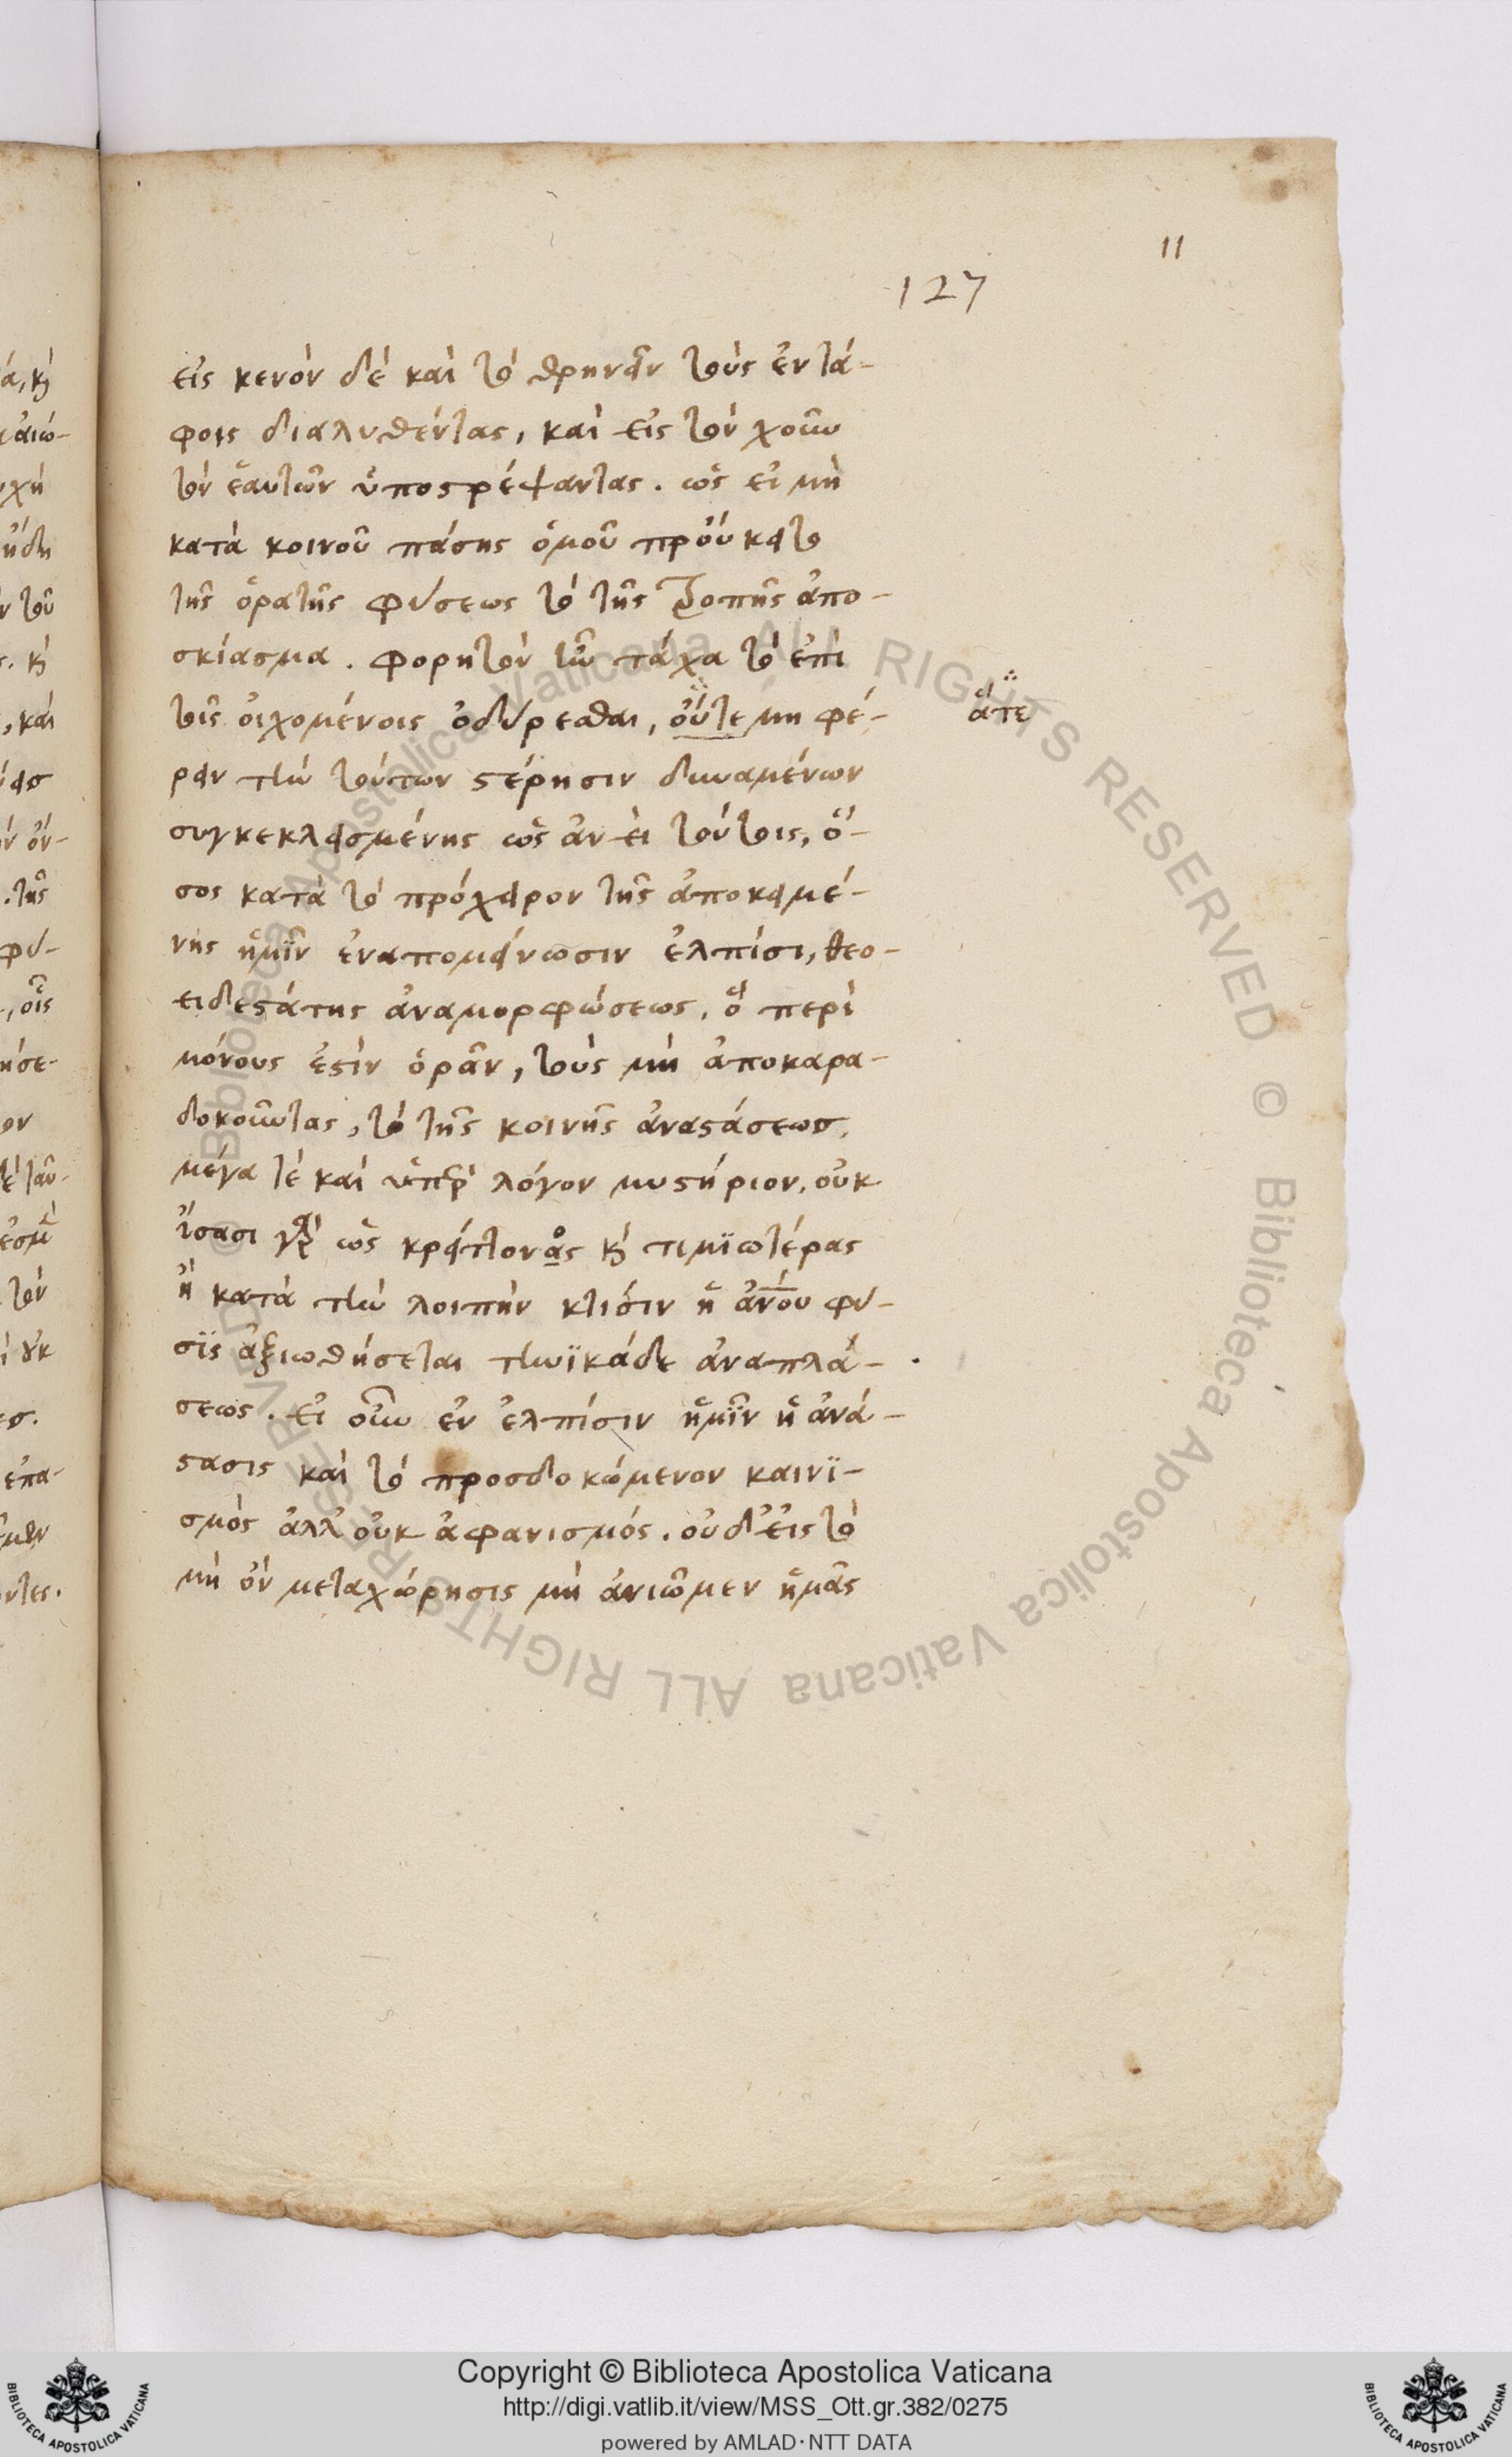 11
127
εἰς κενὸν δὲ καὶ τὸ θρηνεῖν τοὺς ἐν τά-
φοις διαλυθέντας, καὶ εἰς τὸν χοῦν
τὸν ἑαυτῶν ὑποστρέψαντας. ὡς εἰ μὴ
κατὰ κοινοῦ πάσης ὁμοῦ προὔκειτο
τῆς ὁρατῆς φύσεως τὸ τῆς τροπῆς ἀπο-
σκίασμα. φορητὸν ἦν τάχα τὸ ἐπὶ
τοῖς οἰχομένοις ὀδύρεσθαι, οὔτε μη φέ-
ἅτε
ρειν τὴν τούτων στέρησιν δυναμένων
συγκεκλεισμένης ὡς ἂν εἰ τούτοις, ὅ-
σος κατὰ τὸ πρόχειρον τῆς ἀποκειμέ-
νης ἡμῖν ἐναπομείνωσιν ἐλπίσι, θεο-
ειδεστάτης ἀναμορφώσεως, ὃ περὶ
μόνους ἐστὶν ὁρᾶν, τοὺς μὴ ἀποκαρα-
δοκοῦντας, τὸ τῆς κοινῆς ἀναστάσεως,
μέγα τὲ καὶ ὑπὲρ λόγον μυστήριον, οὐκ
ἴσασι γὰρ ὡς κρείττονος κὶ τιμϊωτέρας
ἢ κατὰ τὴν λοιπὴν κτίσιν ἡ ἀνοῦ φύ-
σϊς ἀξιωθήσεται τηνϊκάδε ἀναπλά-
σεως. εἰ οὖν ἐν ἐλπίσιν ἡμῖν ἡ ἀνά-
στασις καὶ τὸ προσδοκώμενον καινϊ-
σμὸς ἀλλ' οὐκ ἀφανισμός. οὐδ' εἰς τὸ
μὴ ὂν μεταχώρησις μὴ ἀνιῶμεν ἡμᾶς
Copyright © Biblioteca Apostolica Vaticana
http://digi.vatlib.it/view/MSS_Ott.gr.382/0275
powered by AMLAD·NTT DATA